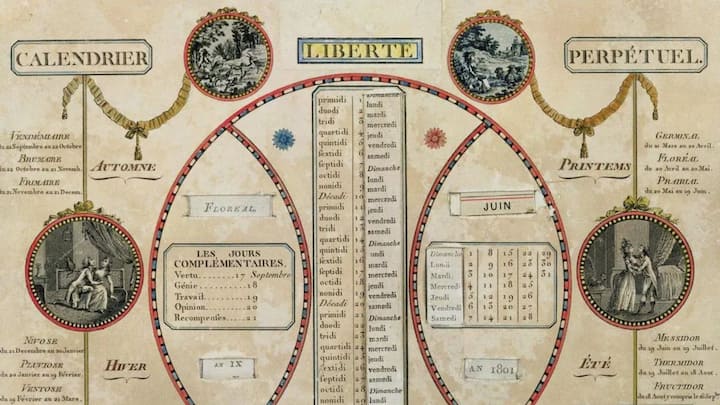 CALENDRIER
LIBERTÉ
PERPÉTUEL.
VENDÉMIAIRE
du 22 Septembre au 22 Octobre
BRUMAIRE
du 22 Octobre au 21 Novemb.
FRIMAIRE
du 21 Novembre au 21 Decem.
AUTOMNE
GERMINAL
du 21 Mars au 21 Avril.
FLORÉAL
du 20 Avril au 20 Mai.
PRAIRIAL
du 20 Mai au 19 Juin.
PRINTEMS
Dimanche
primidi 1 lundi
duodi 2 mardi
tridi 3 mercredi
quartidi 4 jeudi
quintidi 5 vendredi
sextidi 6 samedi
septidi 7 Dimanche
octidi 8 lundi
nonidi 9 mardi
Décadi 10 mercredi
primidi 11 jeudi
duodi 12 vendredi
tridi 13 samedi
quartidi 14 Dimanche
quintidi 15 lundi
sextidi 16 mardi
septidi 17 mercredi
octidi 18 jeudi
nonidi 19 vendredi
Décadi 20 samedi
primidi 21 Dimanche
duodi 22 lundi
tridi 23 mardi
quartidi 24 mercredi
quintidi 25 jeudi
sextidi 26 vendredi
septidi 27 samedi
octidi 28 Dimanche
nonidi 29 lundi
FLOREAL
LES JOURS
COMPLÉMENTAIRES.
Vertu........17 Septembre
Génie..........18
Travail........19
Opinion........20
Recompenses....21
AN IX
JUIN
Dimanche 1 8 15 22 29
Lundi 2 9 16 23 30
Mardi 3 10 17 24 31
Mercredi 4 11 18 25
Jeudi 5 12 19 26
Vendredi 6 13 20 27
Samedi 7 14 21 28
AN 1801
NIVOSE
du 21 Decembre au 20 Janvier
PLUVIOSE
du 20 Janvier au 19 Février.
VENTOSE
du 19 Février au 21 Mars.
HIVER
MESSIDOR
du 19 Juin au 19 Juillet.
THERMIDOR
du 19 Juillet au 18 Aout.
FRUCTIDOR
du 18 Aout y compris le
ÉTÉ